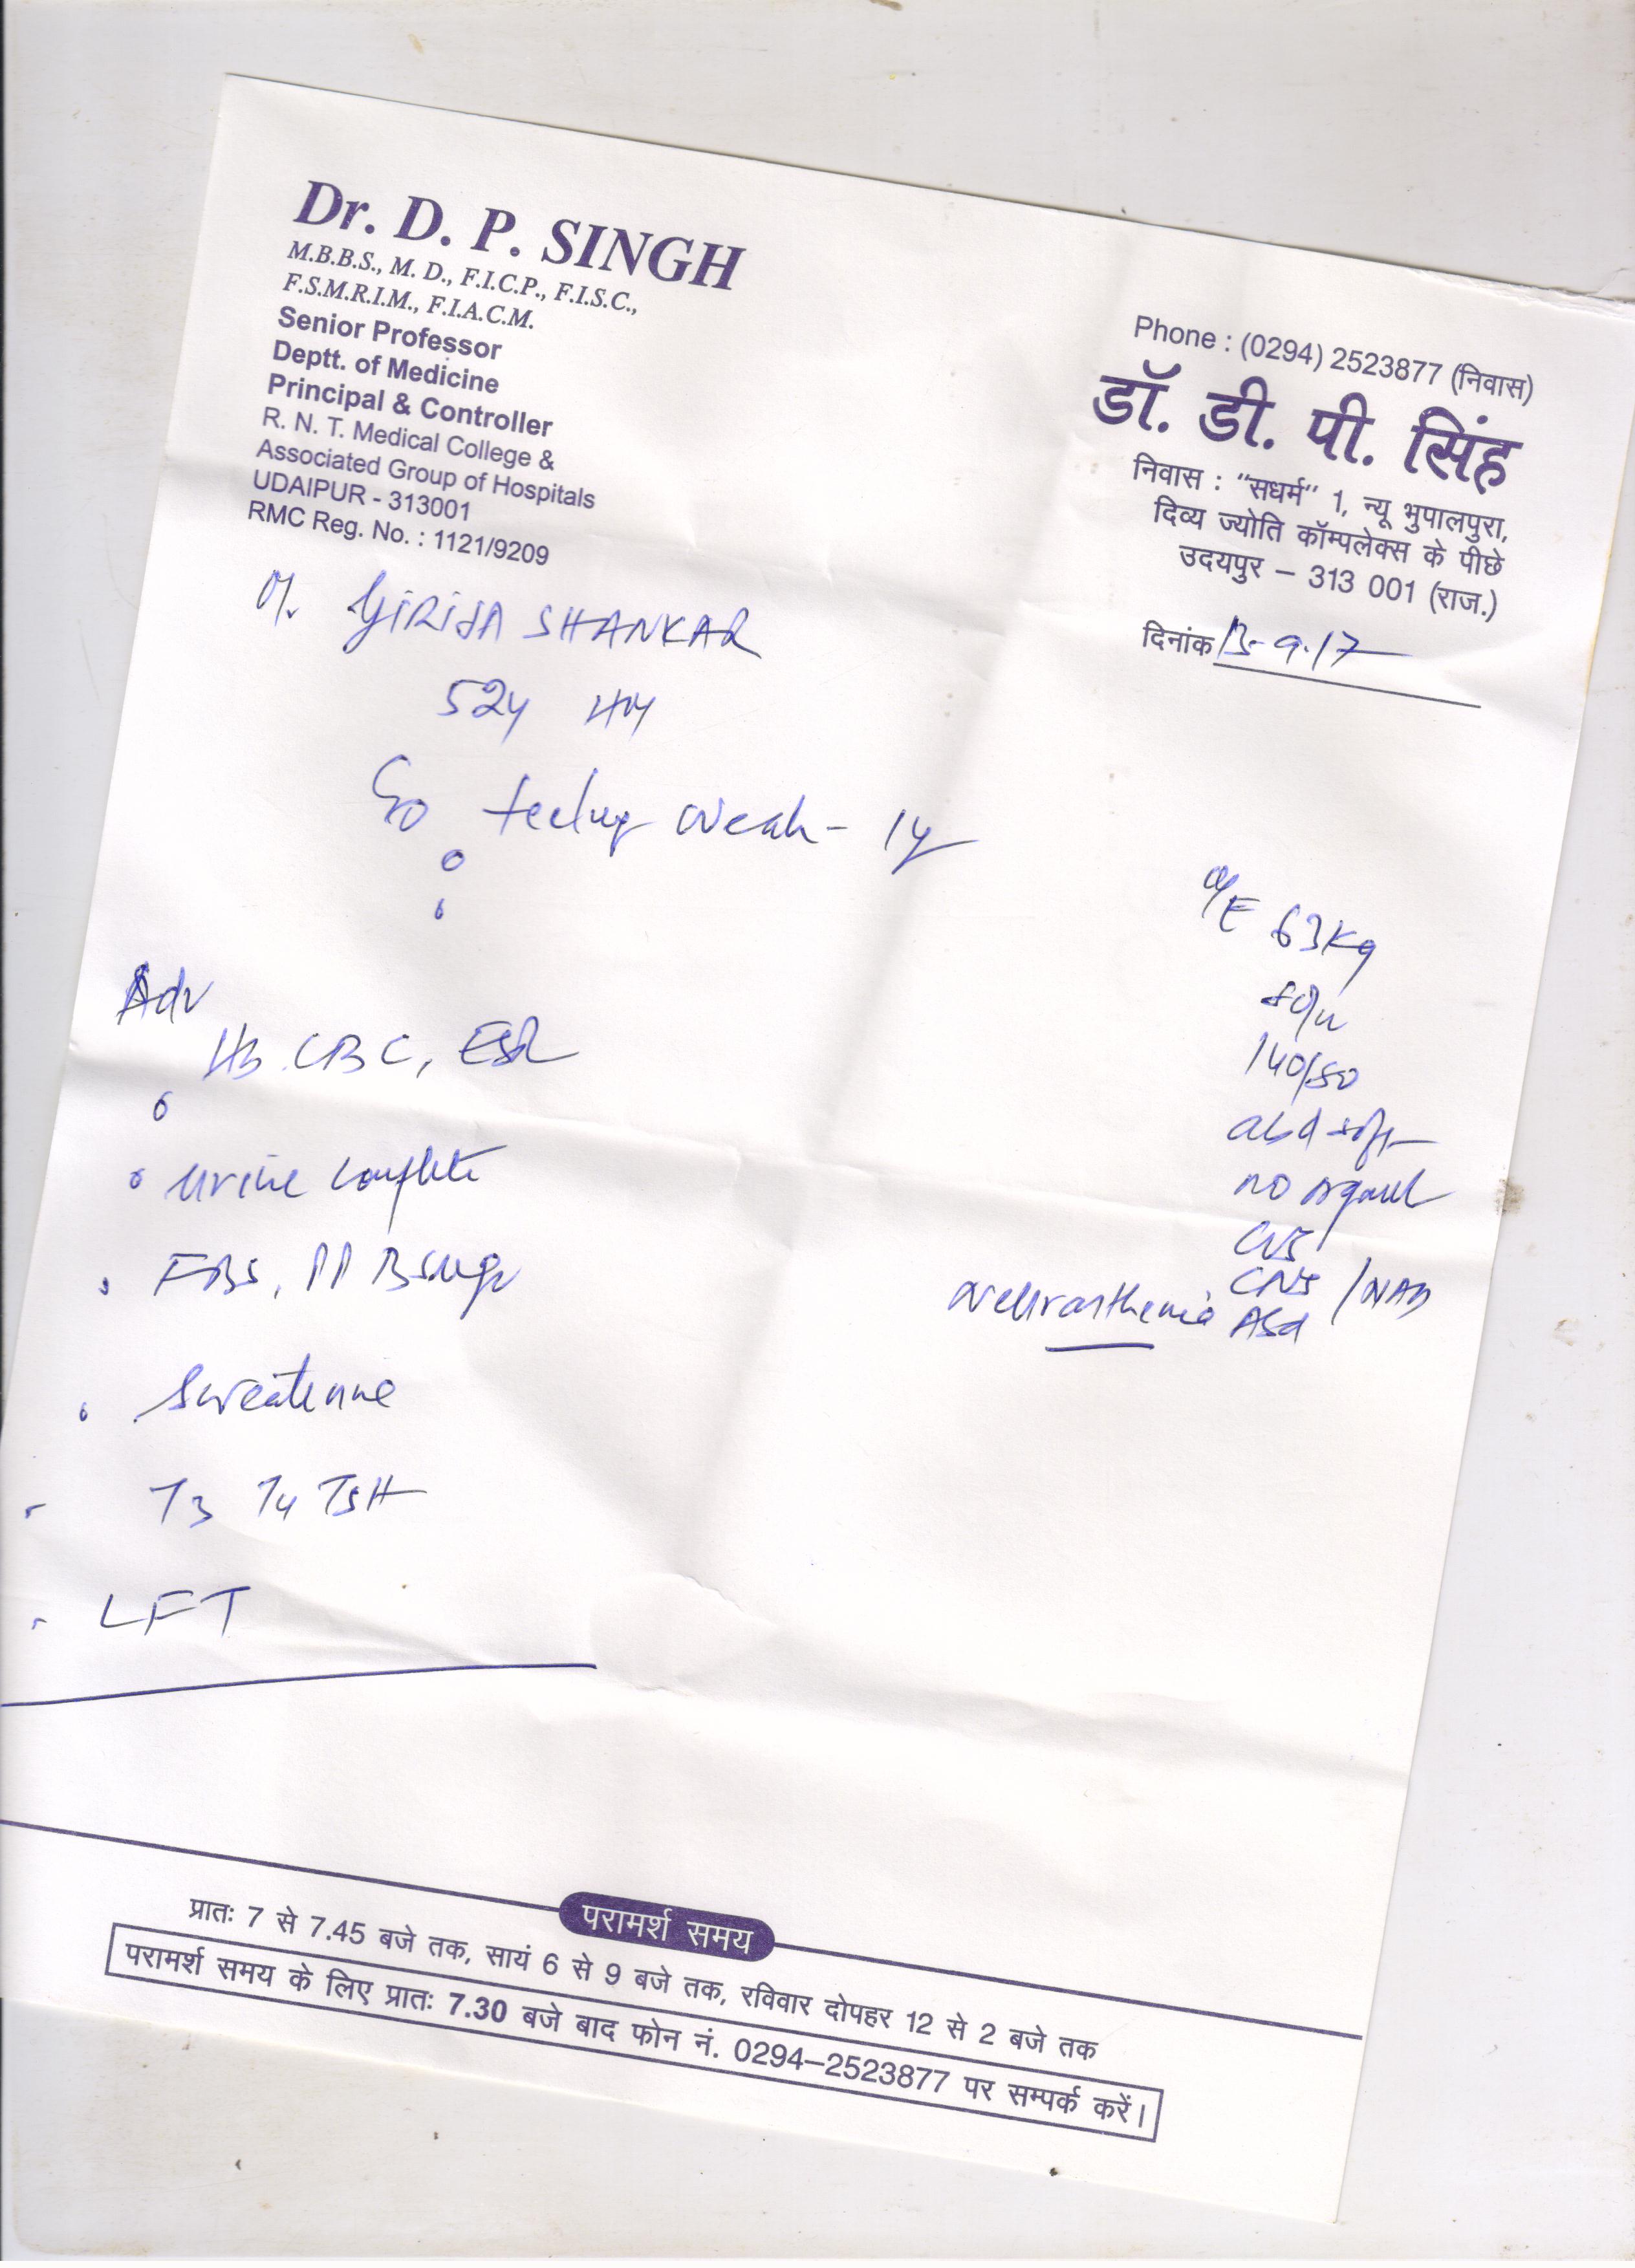 Dr. D. P. SINGH
M.B.B.S., M. D., F.I.C.P., F.I.S.C.,
F.S.M.R.I.M., F.I.A.C.M.
Senior Professor
Deptt. of Medicine
Principal & Controller
R. N. T. Medical College &
Associated Group of Hospitals
UDAIPUR - 313001
RMC Reg. No. : 1121/9209
Phone : (0294) 2523877 (निवास)
डॉ. डी. पी. सिंह
निवास : "सधर्म" 1, न्यू भुपालपुरा,
दिव्य ज्योति कॉम्पलेक्स के पीछे
उदयपुर – 313 001 (राज.)
दिनांक 13-9-17
GIRIJA SHANKAR
52y
feeling weak - 1y
O/E 63kg
140/80
abd soft
no
CVS
CNS / NAD
Neurasthenia
Adv
Hb. CBC, ESR
Urine complete
FBS, PP B sugar
S creatinine
T3 T4 TSH
LFT
परामर्श समय
प्रातः 7 से 7.45 बजे तक, सायं 6 से 9 बजे तक, रविवार दोपहर 12 से 2 बजे तक
परामर्श समय के लिए प्रातः 7.30 बजे बाद फोन नं. 0294–2523877 पर सम्पर्क करें।